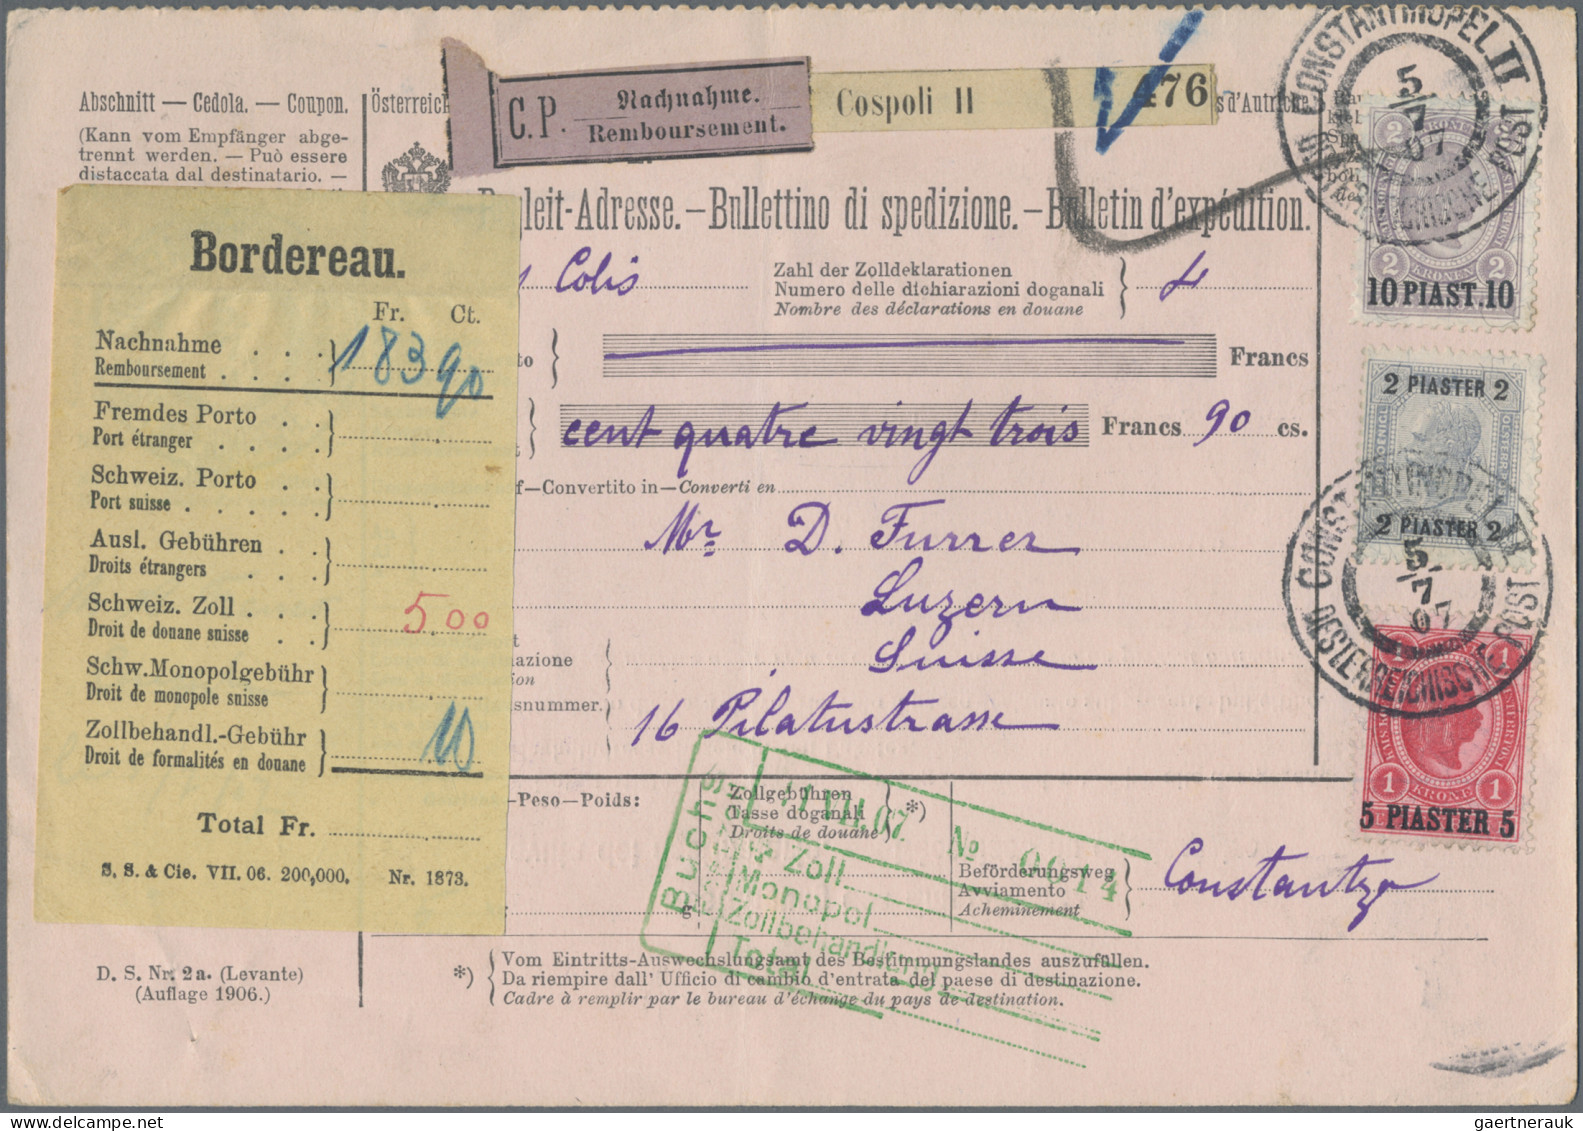 Abschnitt — Cedola. — Coupon.
(Kann vom Empfänger abge-
trennt werden. — Può essere
distaccata dal destinatario. —
Österreich
C.P. Nachnahme.
Remboursement.
Cospoli II 476
s d'Autriche
leit-Adresse.—Bullettino di spedizione.—Bulletin d'expédition.
Colis
Zahl der Zolldeklarationen
Numero delle dichiarazioni doganali
Nombre des déclarations en douane
4
Francs
cent quatre vingt trois Francs 90 cs.
—Convertito in—Converti en
Mr D. Furrer
Luzern
Suisse
16 Pilatustrasse
nazione
snummer.
-Peso-Poids:
g
Zollgebühren
Tasse doganali
Droits de douane
*)
Beförderungsweg
Avviamento
Acheminement
Constantza
*) Vom Eintritts-Auswechslungsamt des Bestimmungslandes auszufüllen.
Da riempire dall' Ufficio di cambio d'entrata del paese di destinazione.
Cadre à remplir par le bureau d'échange du pays de destination.
D. S. Nr. 2a. (Levante)
(Auflage 1906.)
Bordereau.
Fr. Ct.
Nachnahme . . .
Remboursement . . . .
183 90
Fremdes Porto . .
Port étranger . . .
Schweiz. Porto . .
Port suisse . . . . .
Ausl. Gebühren . .
Droits étrangers . . .
Schweiz. Zoll . . .
Droit de douane suisse . .
5 00
Schw. Monopolgebühr
Droit de monopole suisse
Zollbehandl.-Gebühr
Droit de formalités en douane
10
Total Fr.
S. S. & Cie. VII. 06. 200,000. Nr. 1873.
Buchs
VII.07. No 0914
Zoll
Monopol
Zollbehandlung
Total
CONSTANTINOPEL II
5/7 07
OESTERREICHISCHE POST
2 2
KRONEN
2 KRONEN 2
10 PIAST. 10
2 PIASTER 2
2 PIASTER 2
CONSTANTINOPEL II
5/7 07
OESTERREICHISCHE POST
1 1
1 KRONE 1
5 PIASTER 5
gaertnerauk